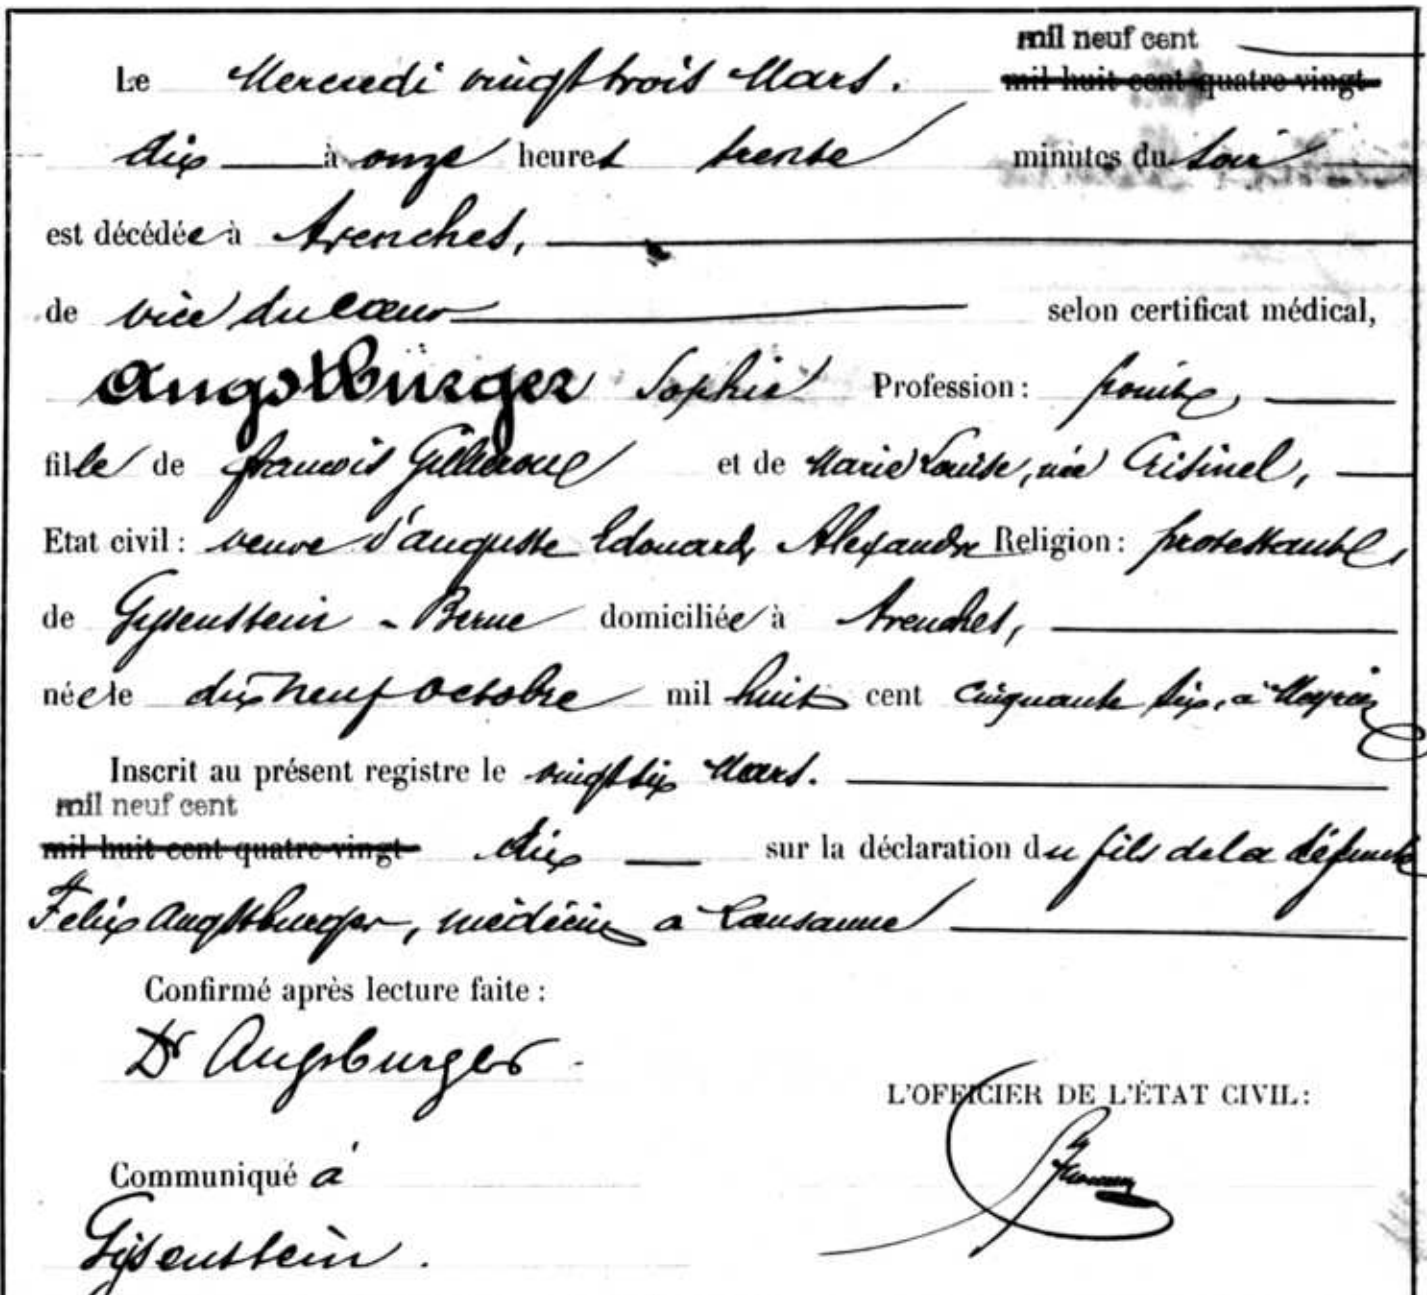 mil neuf cent
Le Mercredi vingt trois Mars. mil huit cent quatre vingt
dix à onze heures trente minutes du soir
est décédée à Avenches,
de vice du cœur selon certificat médical,
Augstburger Sophie Profession:
fille de françois Gilliéron et de Marie Louise, née Crisinel,
Etat civil: veuve d'auguste Edouard Alexandre Religion: protestante,
de Gysenstein - Berne domiciliée à Avenches,
née le dix neuf octobre mil huit cent cinquante six, à
Inscrit au présent registre le vingt six Mars.
mil neuf cent
mil huit cent quatre vingt dix sur la déclaration du fils de la défunte
Felix Augstburger, médecin à Lausanne
Confirmé après lecture faite:
Dr Augsburger
L'OFFICIER DE L'ÉTAT CIVIL:
Communiqué à
Gysenstein.